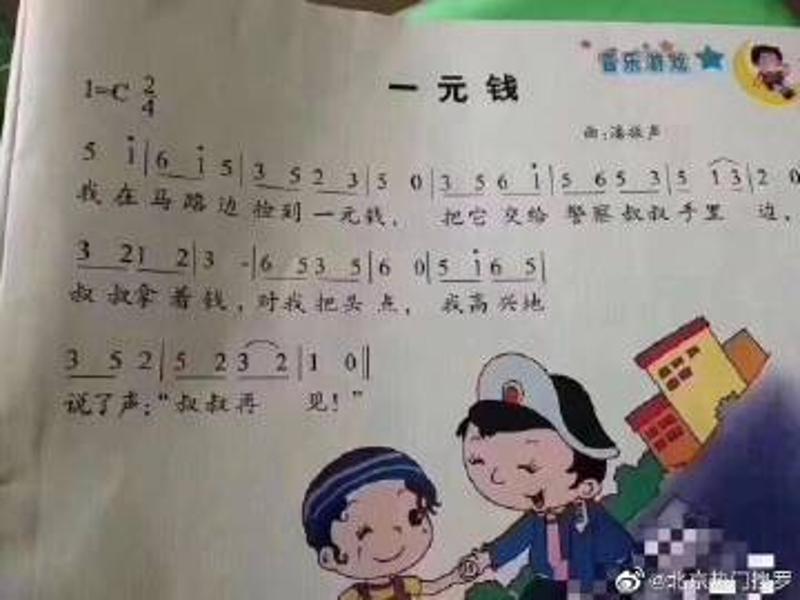 音乐游戏
一元钱
1=C 2/4
曲:潘振声
5 i|6 i 5|3 5 2 3|5 0|3 5 6 i|5 6 5 3|5 1 3|2 0
我在马路边捡到一元钱, 把它交给警察叔叔手里 边,
3 2 1 2|3 -|6 5 3 5|6 0|5 i 6 5|
叔叔拿着钱,对我把头点, 我高兴地
3 5 2|5 2 3 2|1 0‖
说了声:“叔叔再 见!”
@北京热门搜罗